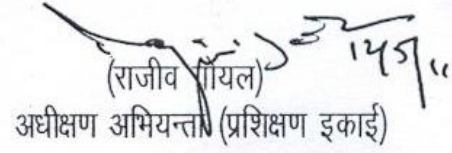 (राजीव गोयल)
अधीक्षण अभियन्ता (प्रशिक्षण इकाई)